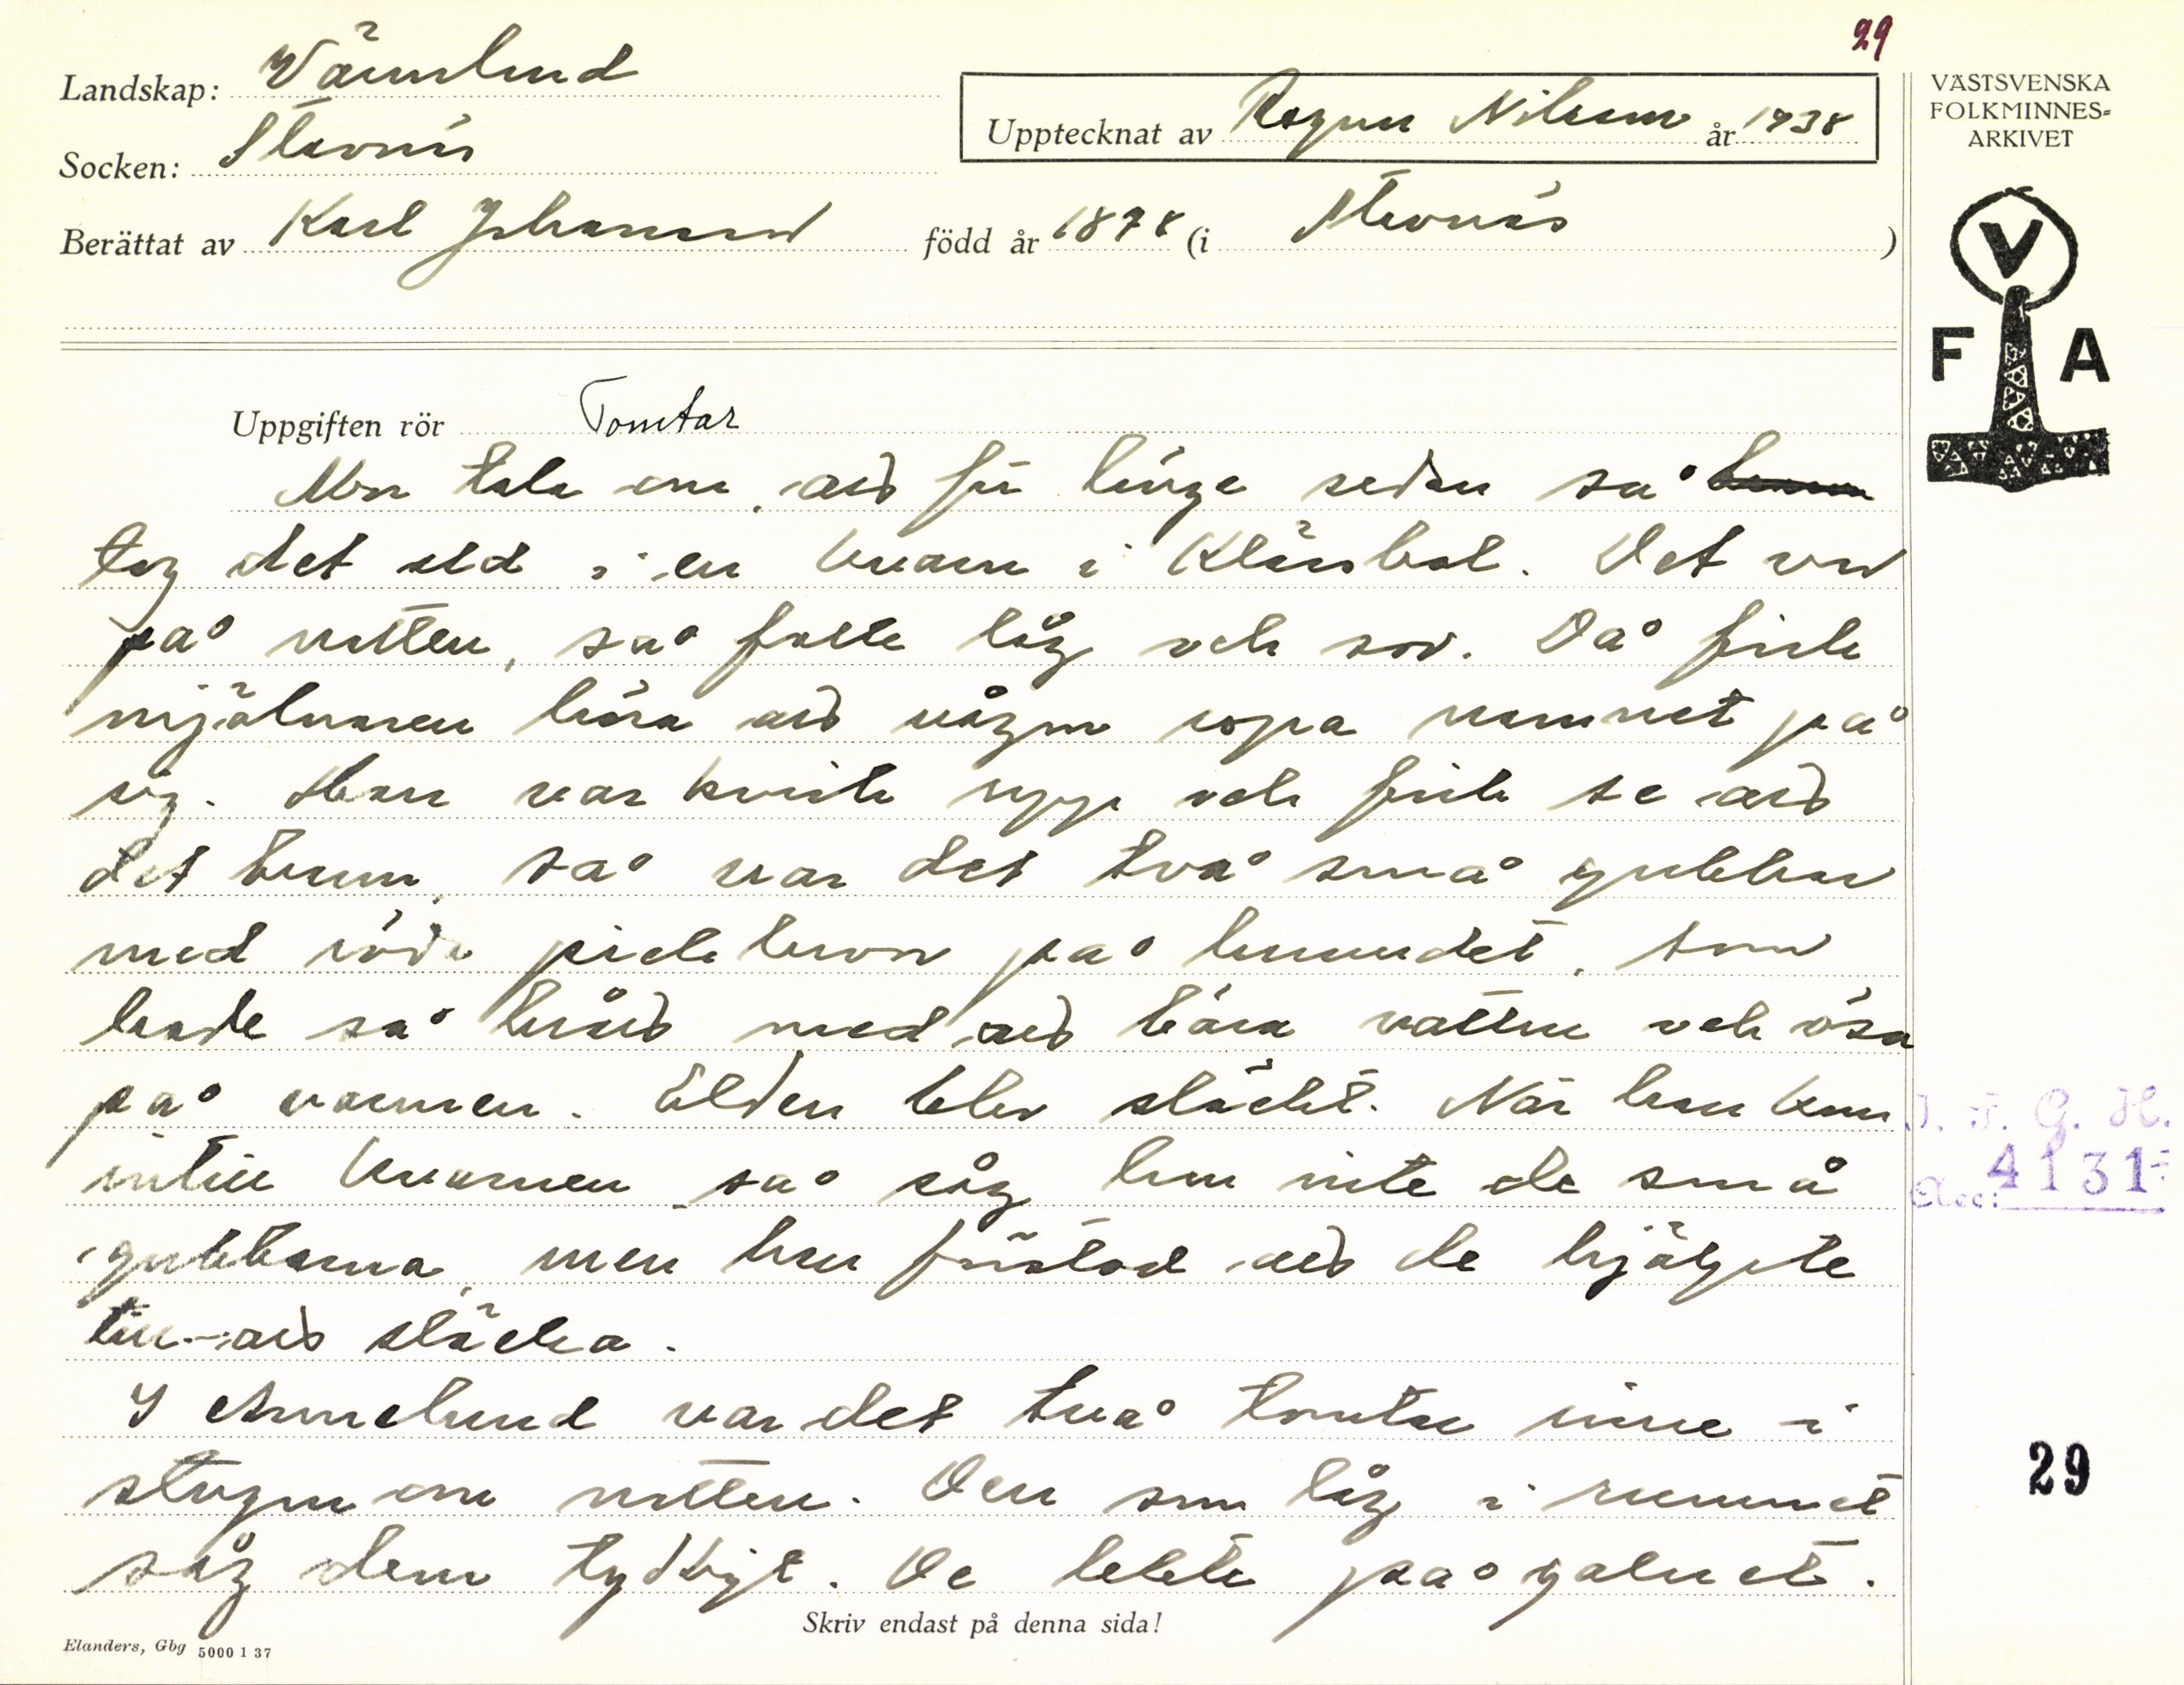 29
Landskap: Värmland
Socken: Stavnäs
Upptecknat av Ragnar Nilsson år 1938
Berättat av Karl Johansson född år 1878 (i Stavnäs)
VÄSTSVENSKA
FOLKMINNES-
ARKIVET
V
F A
Uppgiften rör Tomtar
Mor tala om, att för länge sedan så
tog det eld i en kvarn i Klässbol. Det var
på natten, så folk låg och sov. Då fick
mjölnaren höra att någon ropa namnet på
sig. Han var kvick upp och fick se att
det brann, så var det två små gubbar
med röda pickluvor på huvudet, som
hade så brått med att bära vatten och ösa
på varmen. Elden blev släckt. När han kom
intill kvarnen så såg han inte de små
gubbarna, men han förstod att de hjälpte
till att släcka.
I Annelund var det två tomtar inne i
stugan om natten. Den som låg i rummet
såg dem tydligt. De lekte på golvet.
J. F. G. H.
Acc: 4131
29
Skriv endast på denna sida!
Elanders, Gbg 5000 1 37